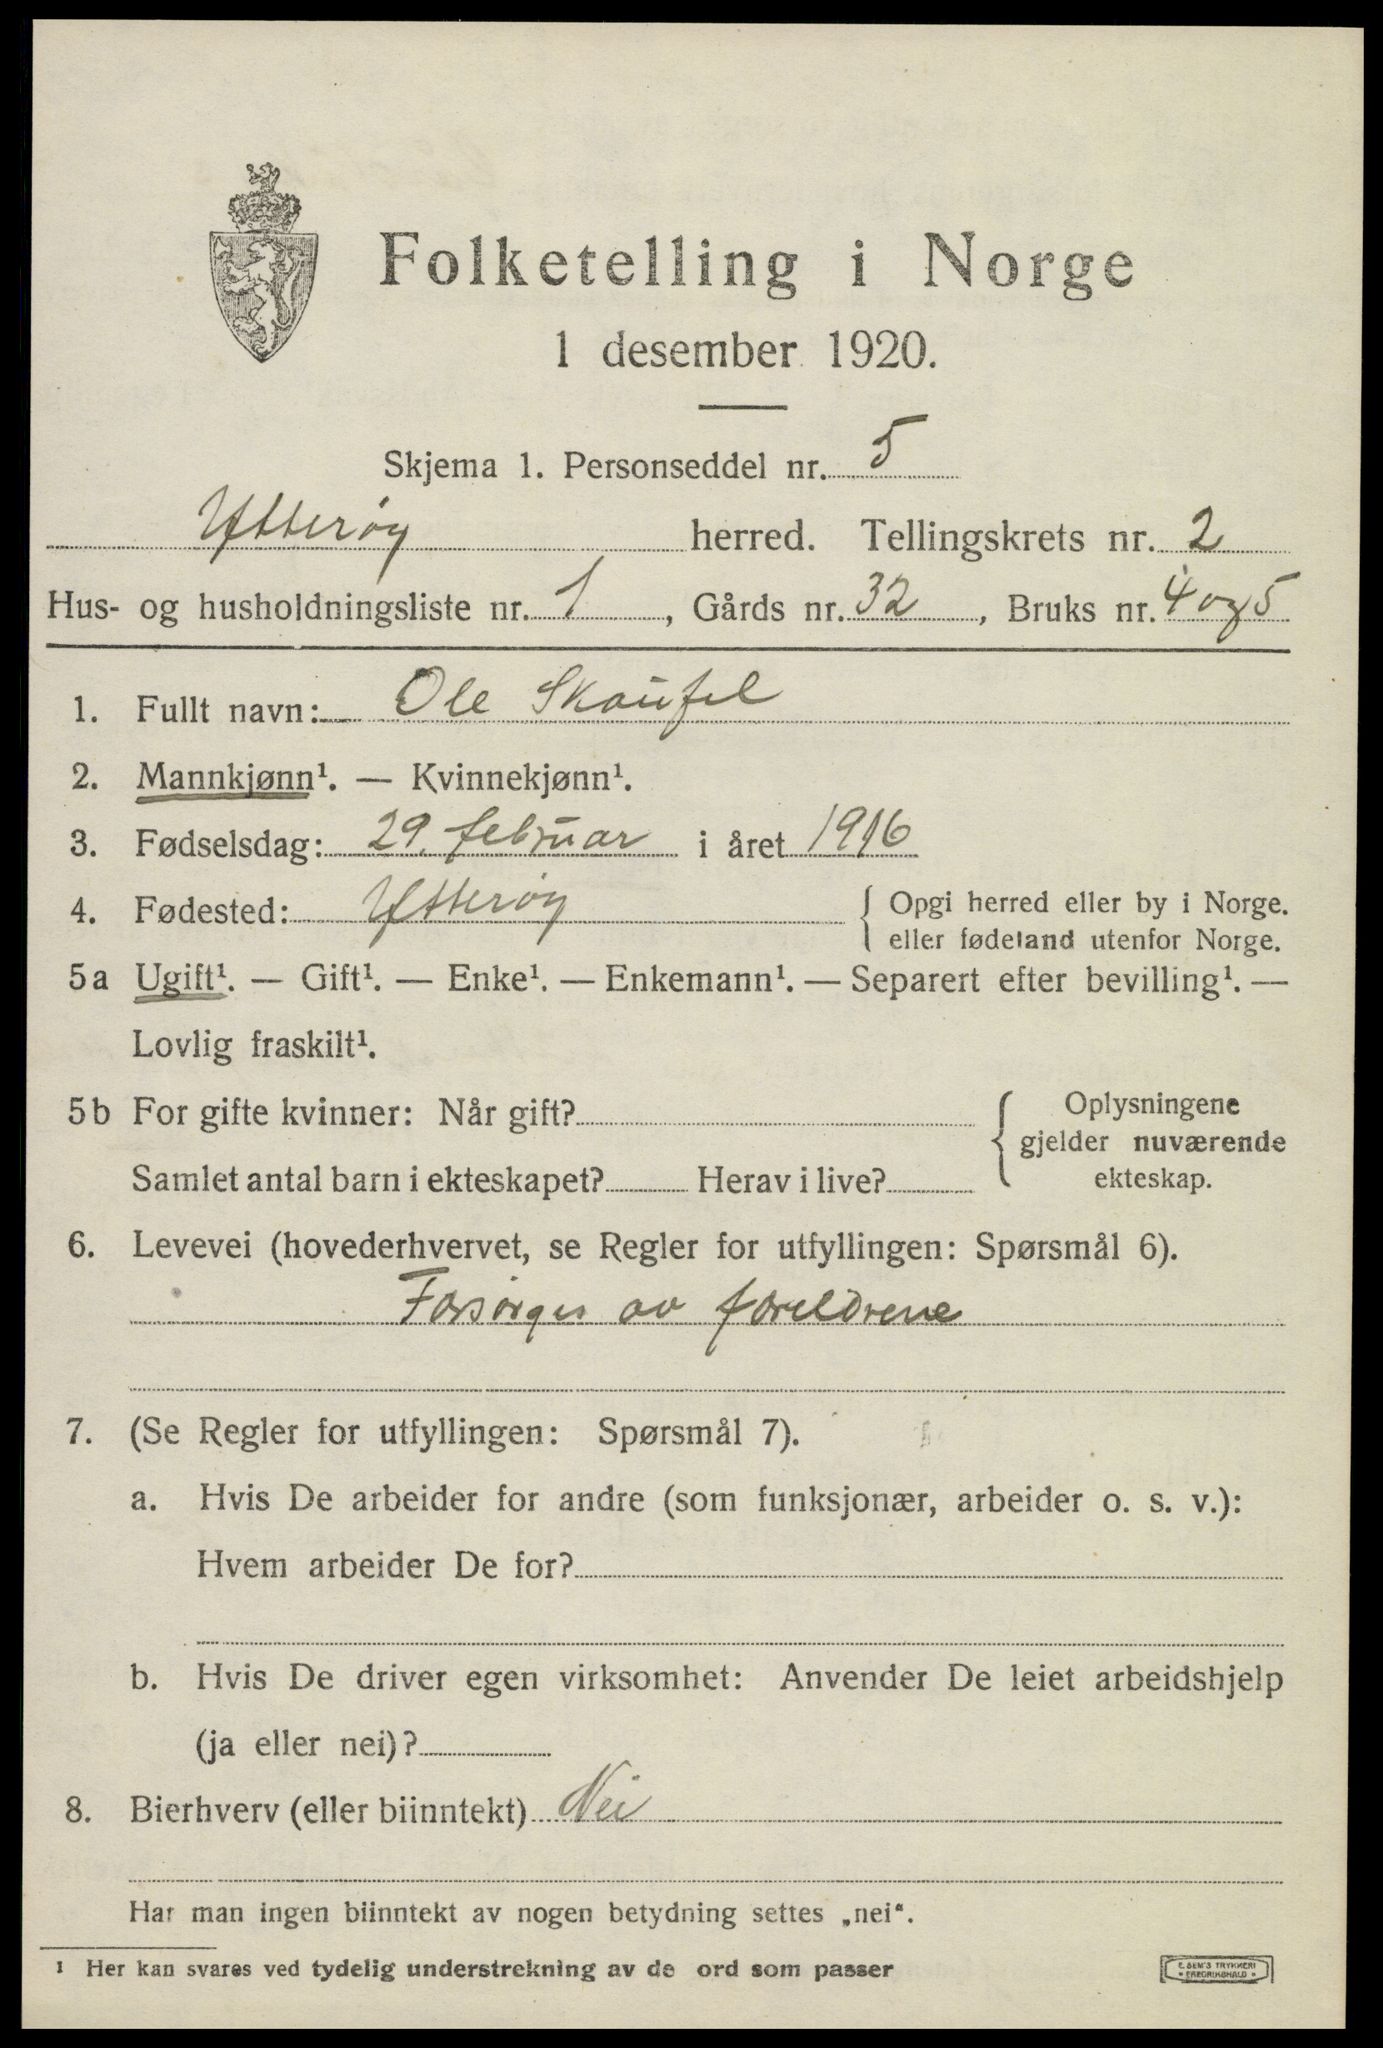 Folketelling i Norge
1 desember 1920.
Skjema 1. Personseddel nr. 5
Ytterøy herred. Tellingskrets nr. 2
Hus- og husholdningsliste nr. 1, Gårds nr. 32, Bruks nr. 4 og 5
1. Fullt navn: Ole Skaufel
2. Mannkjønn¹. — Kvinnekjønn¹.
3. Fødselsdag: 29. februar i året 1916
4. Fødested: Ytterøy { Opgi herred eller by i Norge.
eller fødeland utenfor Norge.
5a Ugift¹. — Gift¹. — Enke¹. — Enkemann¹. — Separert efter bevilling¹. —
Lovlig fraskilt¹.
5b For gifte kvinner: Når gift? { Oplysningene
gjelder nuværende
Samlet antal barn i ekteskapet? Herav i live? ekteskap.
6. Levevei (hovederhvervet, se Regler for utfyllingen: Spørsmål 6).
Forsørges av foreldrene
7. (Se Regler for utfyllingen: Spørsmål 7).
a. Hvis De arbeider for andre (som funksjonær, arbeider o. s. v.):
Hvem arbeider De for?
b. Hvis De driver egen virksomhet: Anvender De leiet arbeidshjelp
(ja eller nei)?
8. Bierhverv (eller biinntekt) Nei
Har man ingen biinntekt av nogen betydning settes „nei“.
¹ Her kan svares ved tydelig understrekning av de ord som passer
E. SEM'S TRYKKERI
• FREDRIKSHALD •